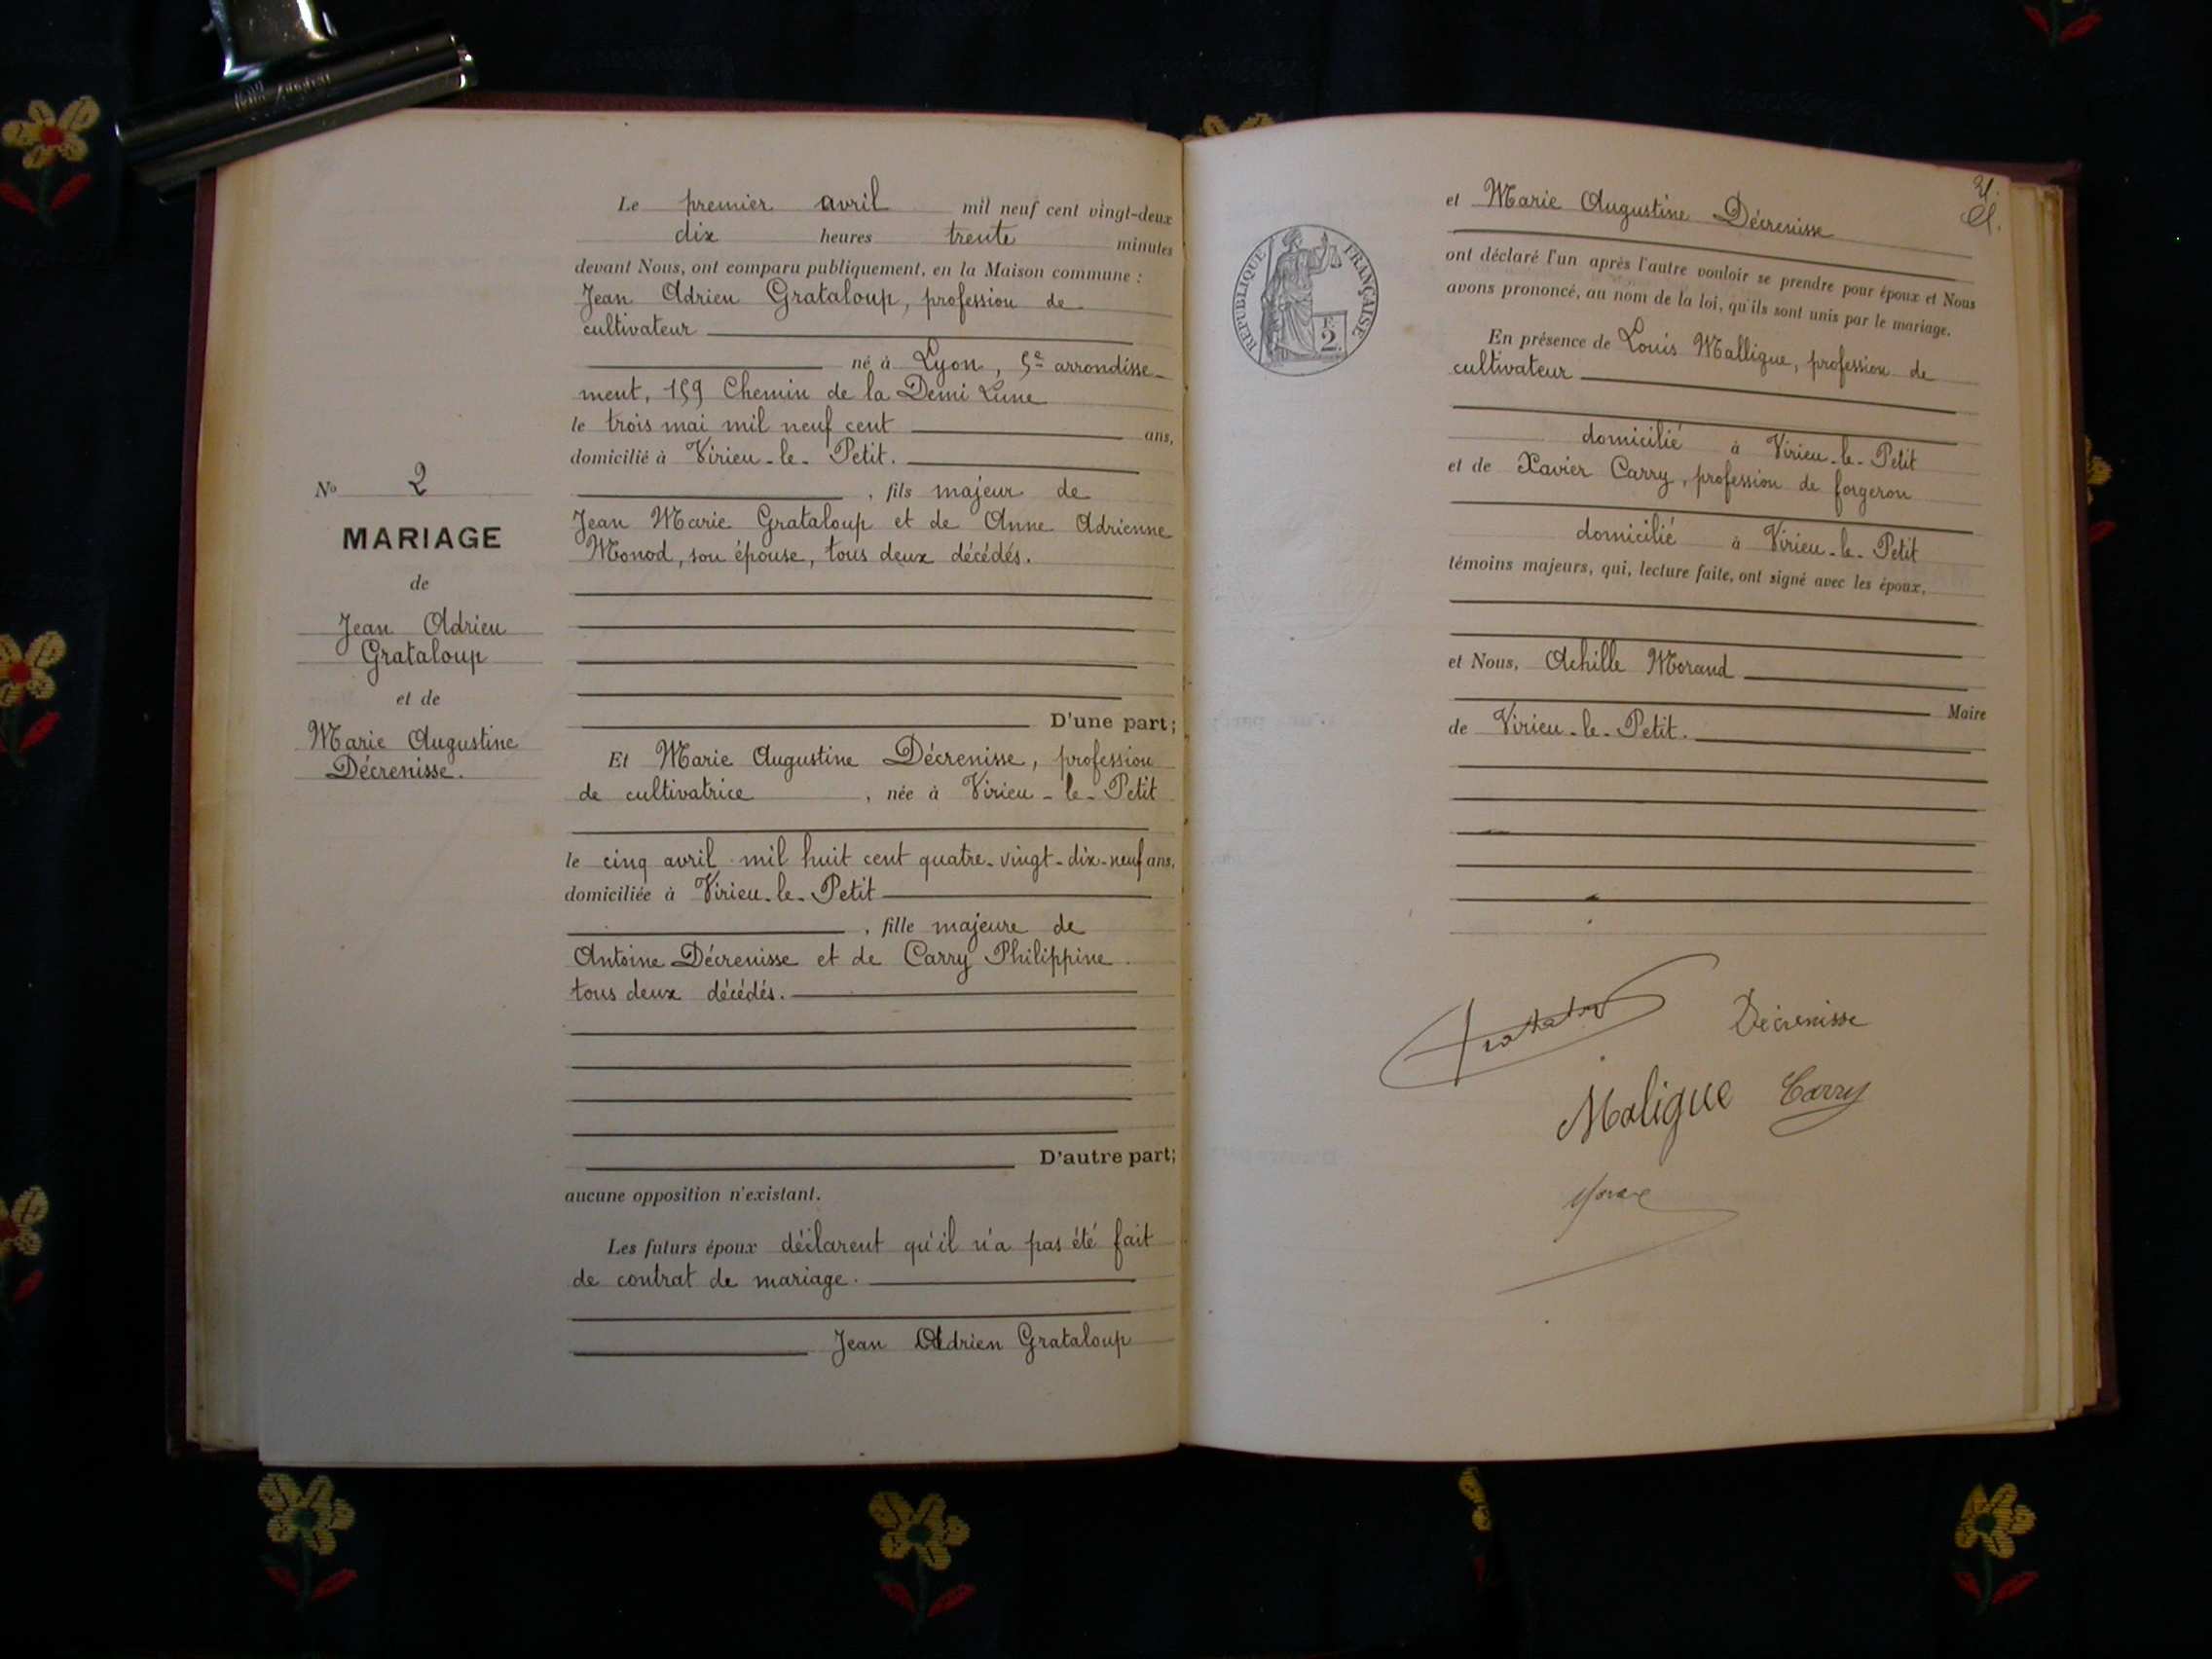 Le premier avril mil neuf cent vingt-deux
dix heures trente minutes
devant Nous, ont comparu publiquement, en la Maison commune :
Jean Adrien Grataloup, profession de
cultivateur
né à Lyon, 5e arrondisse-
ment, 159 Chemin de la Demi Lune
le trois mai mil neuf cent ans,
domicilié à Virieu-le-Petit.
, fils majeur de
Jean Marie Grataloup et de Anne Adrienne
Monod, son épouse, tous deux décédés.
D'une part;
Et Marie Augustine Décrenisse, profession
de cultivatrice , née à Virieu-le-Petit
le cinq avril mil huit cent quatre-vingt-dix-neuf ans,
domiciliée à Virieu-le-Petit
, fille majeure de
Antoine Décrenisse et de Carry Philippine
tous deux décédés.
D'autre part;
aucune opposition n'existant.
Les futurs époux déclarent qu'il n'a pas été fait
de contrat de mariage.
Jean Adrien Grataloup
No 2
MARIAGE
de
Jean Adrien
Grataloup
et de
Marie Augustine
Décrenisse.
et Marie Augustine Décrenisse
ont déclaré l'un après l'autre vouloir se prendre pour époux et Nous
avons prononcé, au nom de la loi, qu'ils sont unis par le mariage.
En présence de Louis Malligue, profession de
cultivateur
domicilié à Virieu-le-Petit
et de Xavier Carry, profession de forgeron
domicilié à Virieu-le-Petit
témoins majeurs, qui, lecture faite, ont signé avec les époux,
et Nous, Achille Morand
Maire
de Virieu-le-Petit.
REPUBLIQUE FRANÇAISE
F.
2.
Décrenisse
Maligue Carry